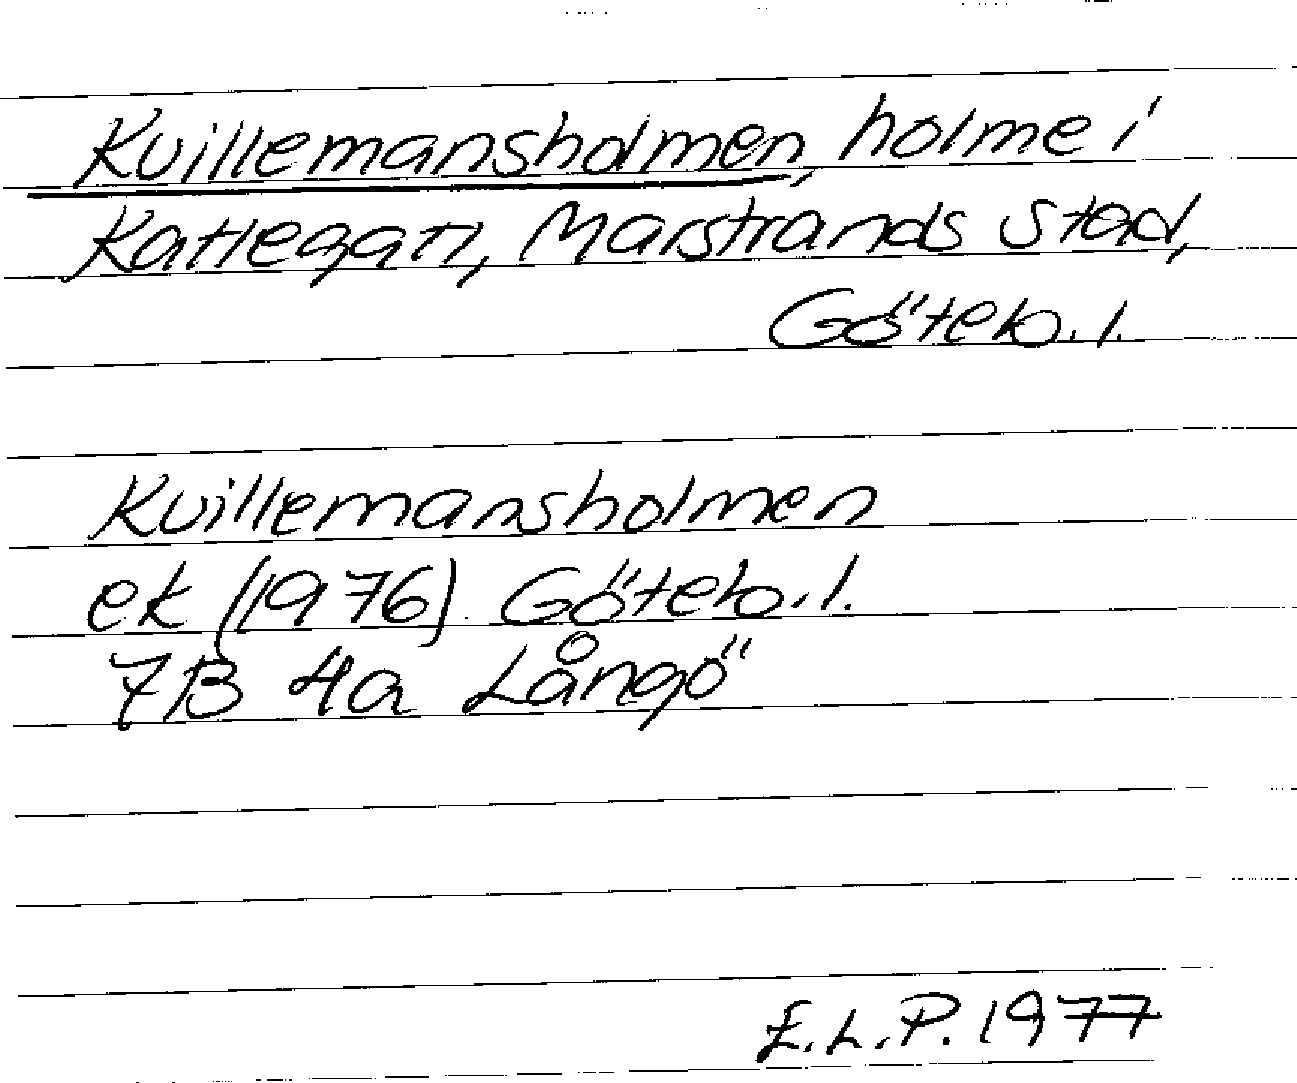 Kvillemansholmen, holme i
Kattegatt, Marstrands stad,
Göteb. l.
Kvillemansholmen
ek (1976) Göteb. l.
7B 4a Långö
E.L.P. 1977